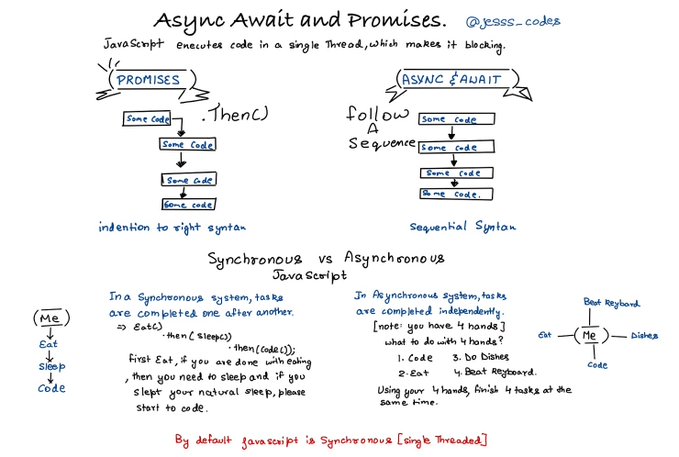 Async Await and Promises. @jesss_codes
JavaScript executes code in a single Thread, which makes it blocking.
PROMISES
Some Code
.Then()
Some Code
Some Code
Some code
indention to right syntax
ASYNC & AWAIT
follow
A
Sequence
Some Code
Some Code
Some Code
Some Code.
Sequential Syntax
Synchronous vs Asynchronous
JavaScript
(Me)
Eat
Sleep
Code
In a Synchronous system, tasks
are completed one after another.
⇒ Eat()
.then(Sleep())
.then(Code());
first Eat, if you are done with eating
, then you need to sleep and if you
slept your natural sleep, please
start to code.
In Asynchronous system, tasks
are completed independently.
[note: you have 4 hands]
what to do with 4 hands?
1. Code 3. Do Dishes
2. Eat 4. Beat Keyboard.
Using your 4 hands, finish 4 tasks at the
same time.
Beat Keyboard
Eat (Me) Dishes
Code
By default Javascript is Synchronous [single Threaded]